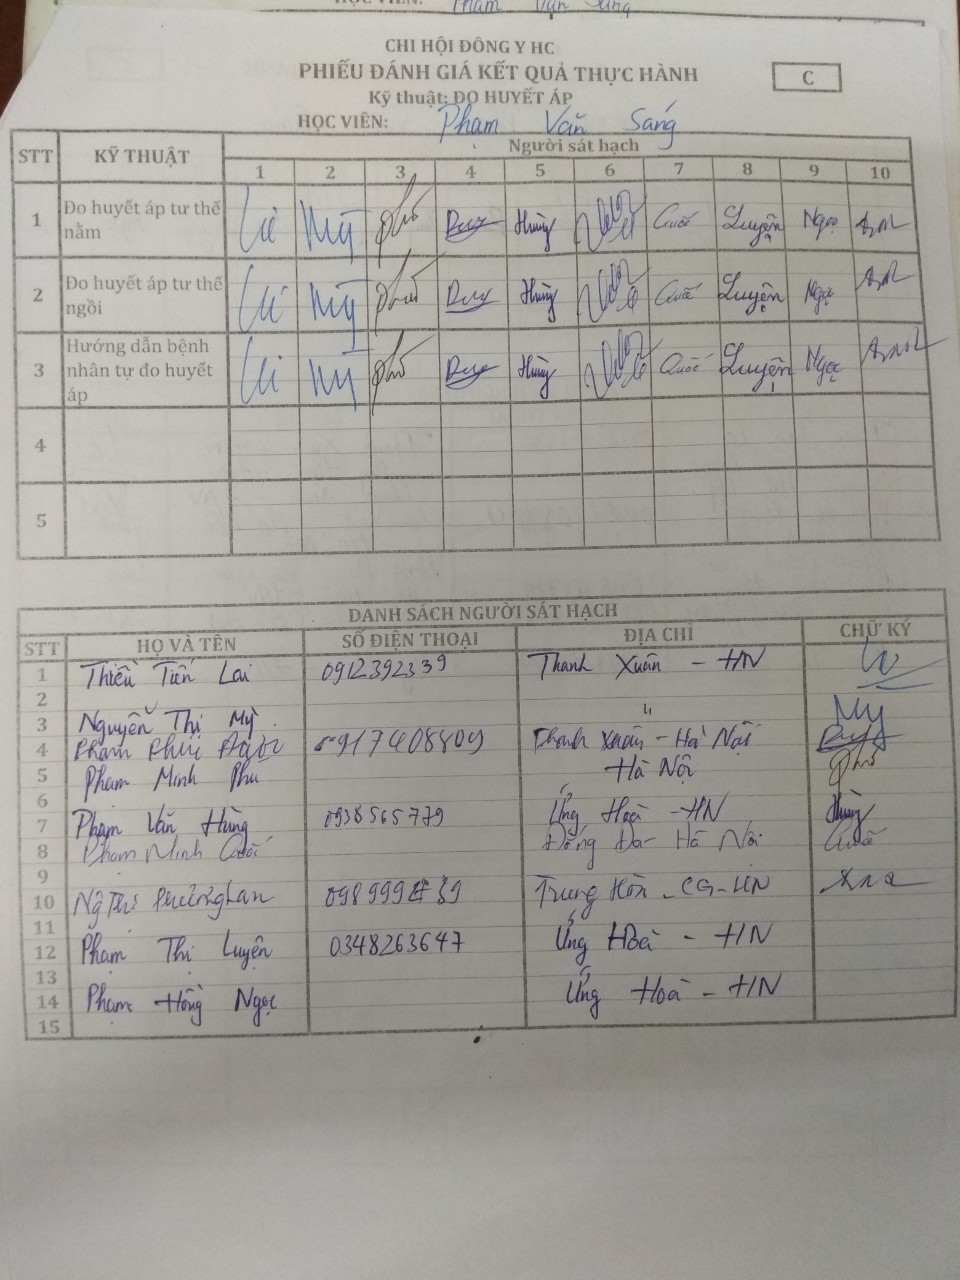 HỌC VIÊN: Phạm Văn Sáng
CHI HỘI ĐÔNG Y HC
PHIẾU ĐÁNH GIÁ KẾT QUẢ THỰC HÀNH
C
Kỹ thuật: ĐO HUYẾT ÁP
HỌC VIÊN: Phạm Văn Sáng
STT KỸ THUẬT Người sát hạch
1 2 3 4 5 6 7 8 9 10
1 Đo huyết áp tư thế nằm Mỹ Phú Duy Hùng Quốc Luyện Ngọc
2 Đo huyết áp tư thế ngồi Mỹ Phú Duy Hùng Quốc Luyện Ngọc
3 Hướng dẫn bệnh nhân tự đo huyết áp Mỹ Phú Duy Hùng Quốc Luyện Ngọc
4
5
DANH SÁCH NGƯỜI SÁT HẠCH
STT HỌ VÀ TÊN SỐ ĐIỆN THOẠI ĐỊA CHỈ CHỮ KÝ
1 Thiều Tiến Lai 0912392339 Thanh Xuân - HN
2
3 Nguyễn Thị Mỳ. " My
4 Phạm 0917408809 Thanh Xuân - Hà Nội Duy
5 Phạm Minh Phú Hà Nội Phú
6
7 Phạm Văn Hùng 0938565779 Ứng Hoà - HN Hùng
8 Phạm Minh Quốc Đống Đa - Hà Nội Quốc
9
10 Trung Hòa - CG - HN
11
12 Phạm Thị Luyện 0348263647 Ứng Hoà - HN
13
14 Phạm Hồng Ngọc Ứng Hoà - HN
15